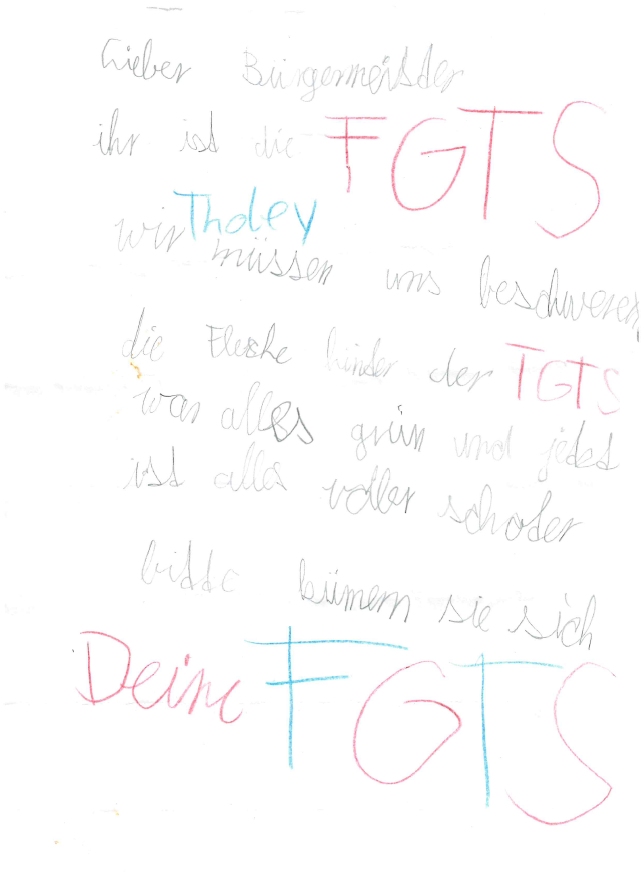 Lieber Bürgermeisder
ihr ist die FGTS
Tholey
wir müssen uns beschweren
die Fleshe hinder der TGTS
war alles grün und jedst
ist alles voller schoder
bidde kümern sie sich
Deine FGTS